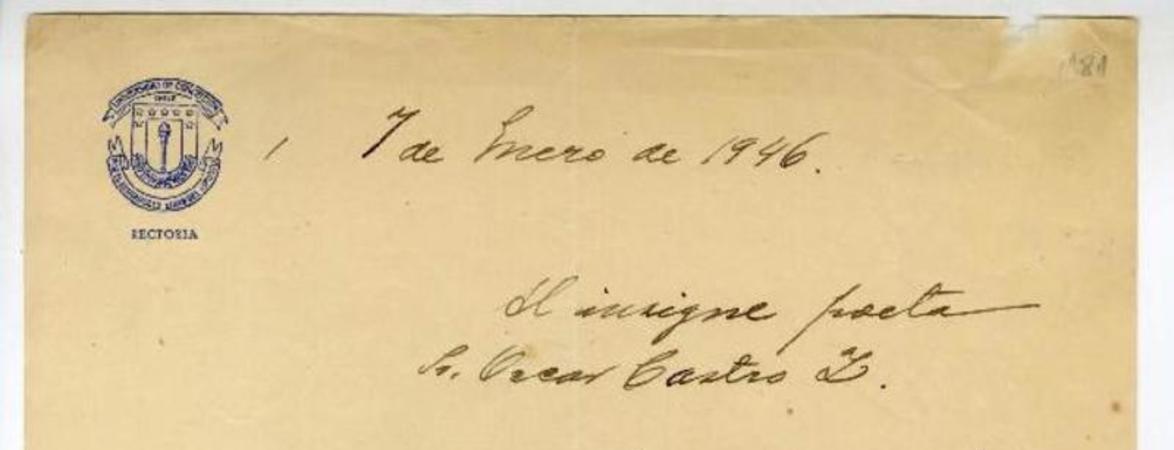 181
UNIVERSIDAD DE CONCEPCION
CHILE
RECTORIA
7 de Enero de 1946.
Al insigne poeta
Sr. Oscar Castro Z.